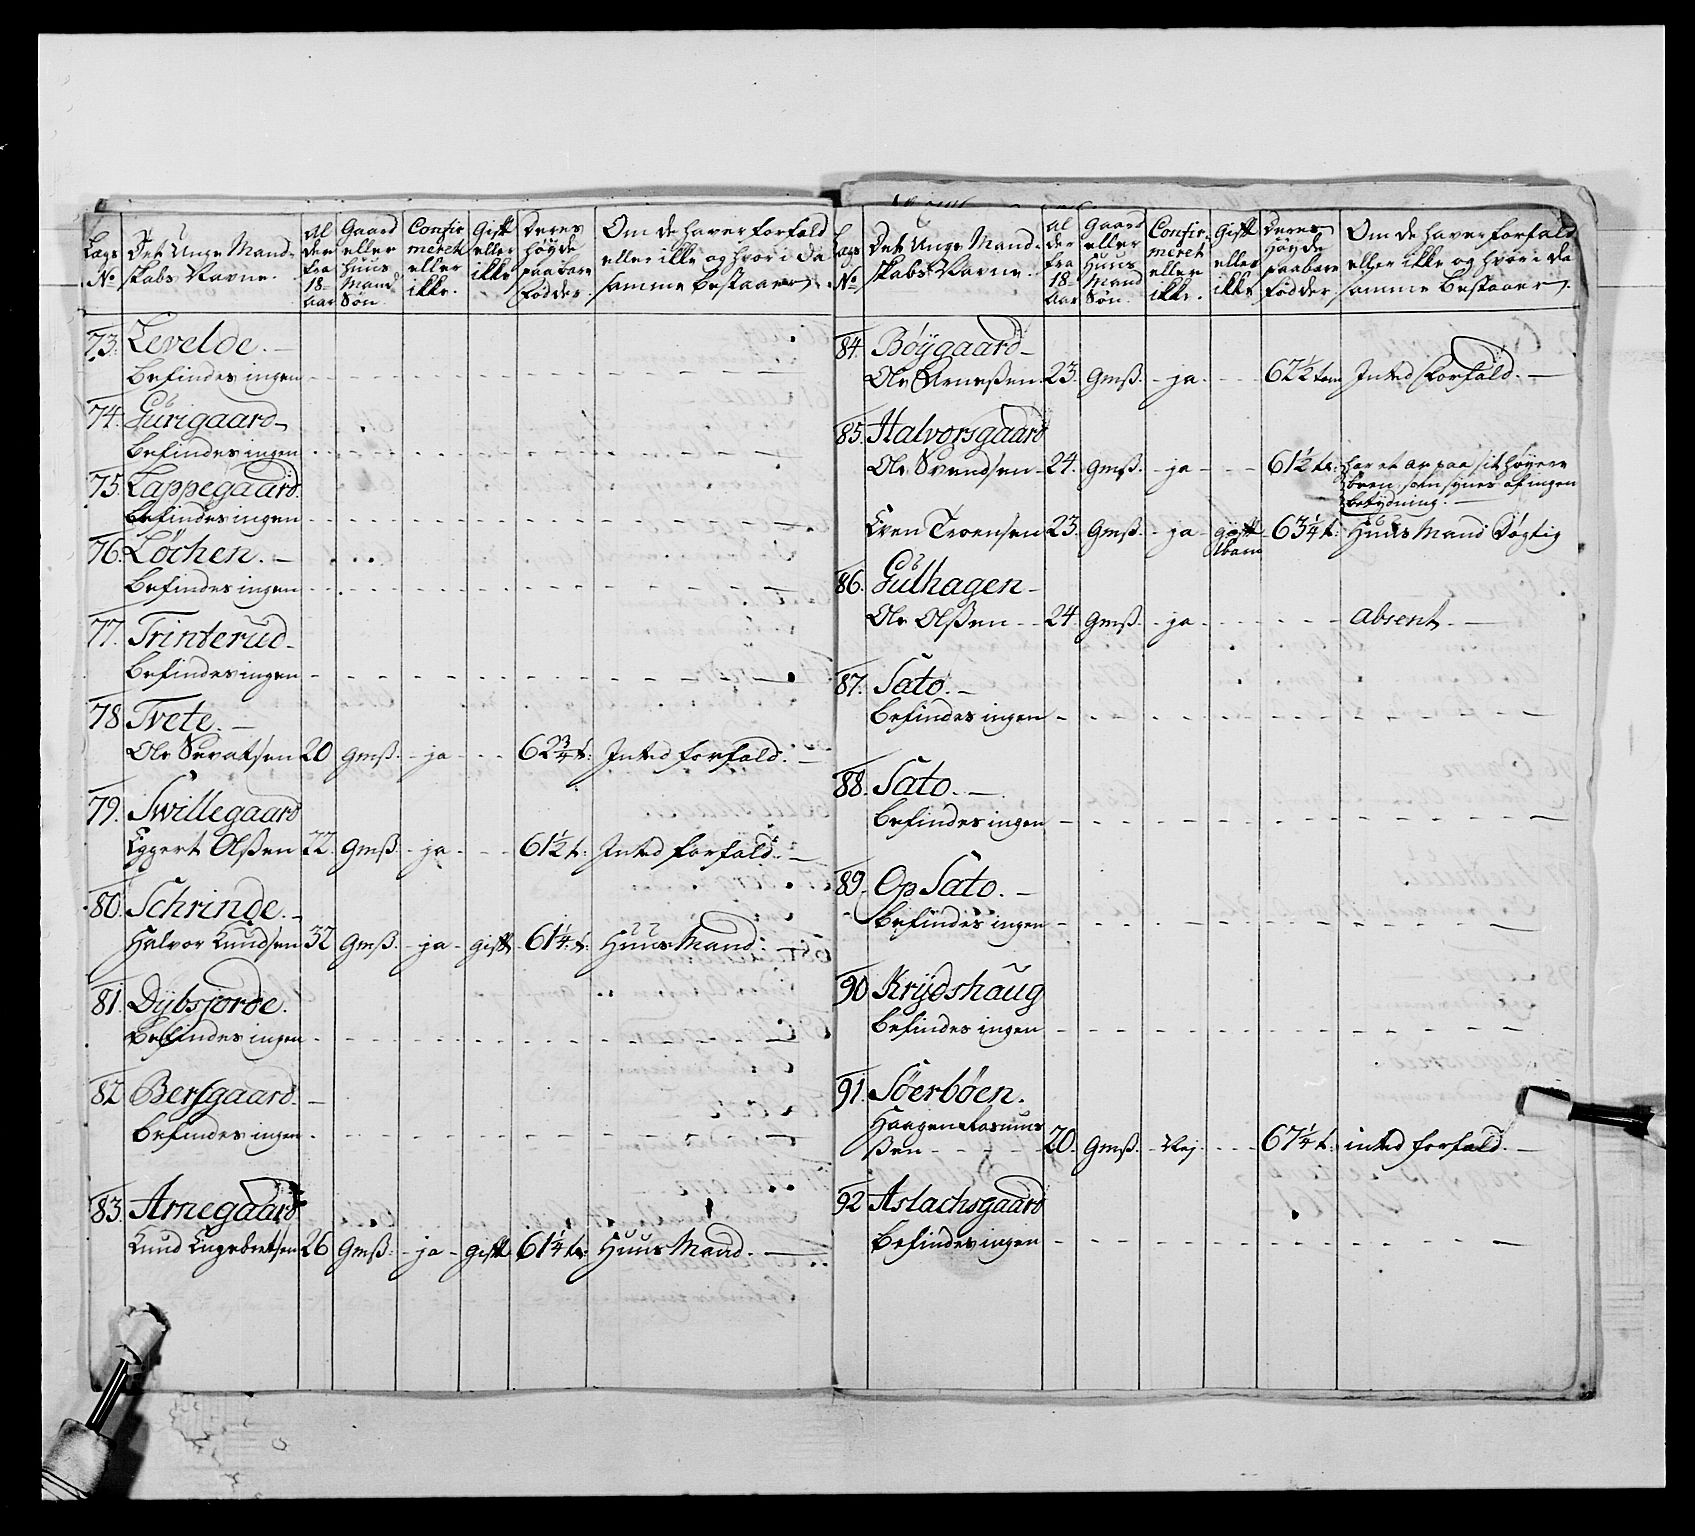 Lægs No | Det Unge Mandskabs Navne. | Alder fra 18 Aar | Gaard eller Huus Mand Søn | Confirmeret eller ikke. | Gift eller ikke | Deres høyde paa bare Fødder | Om de haver forfald eller ikke og hvori da samme bestaaer
73. Levelde.
befindes ingen
74. Gurigaard
befindes ingen
75. Lappegaard.
befindes ingen
76. Løchen.
befindes ingen
77. Trinterud
befindes ingen
78. Tvete.
Ole Sevatsen 20 Gmß. ja 62 3/4 t: Inted forfald.
79. Swillegaard
Eggert Olßen 22. Gmß. ja 61 1/2 t: Inted forfald.
80. Schrinde.
Halvor Knudsen 32 Gmß. ja gift 61 1/4 t. Huus Mand.
81. Dybsjorde.
befindes ingen
82. Bersgaard.
befindes ingen
83. Arnegaard
Knud Engebretsen 26 Gmß. ja gift 61 1/4 te Huus Mand.
Lægs No | Det Unge Mandskabs Navne. | Alder fra 18 Aar | Gaard eller Huus Mand Søn | Confirmeret eller ikke. | Gift eller ikke | Deres høyde paa bare Fødder | Om de haver forfald eller ikke og hvori da samme bestaaer.
84. Bøygaard
Ole Arneßen. 23. Gmß. ja 62 1/2 tom Inted Forfald.
85. Halvorsgaard
Ole Svendsen 24. Gmß. ja 61 1/2 te: har et ar paa sit høyere
been, som synes af ingen
betydning.
Even Troensen 23. Gmß. ja gift 1 barn 63 1/4 t: Huus Mand Døgtig
86. Gulhagen
Ole Olßen 24. Gmß. ja absent.
87. Sato.
befindes ingen
88. Sato.
befindes ingen
89. Op Sato.
befindes ingen
90 Krydshaug
befindes ingen
91. Søerbøen.
Haagen Rasmus
ßen 20. Gmß. Nej 67 1/4 t. inted forfald.
92 Aslachsgaard
befindes ingen